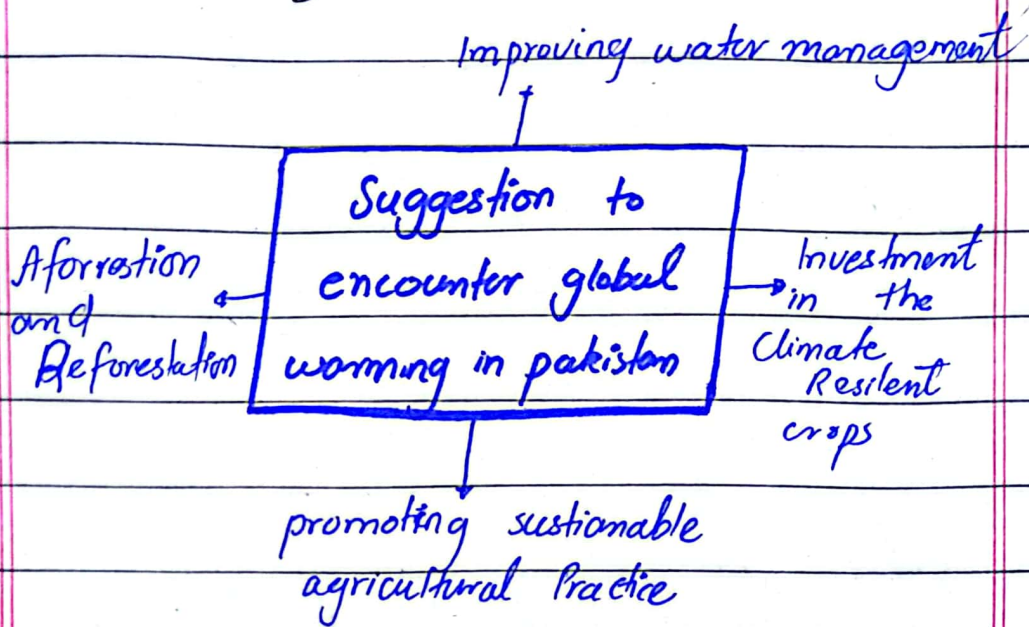 Improving water management
Suggestion to
encounter global
warming in pakistan
Aforrestion
and
Reforestation
Investment
in the
Climate
Resilent
crops
promoting sustionable
agricultural Practice